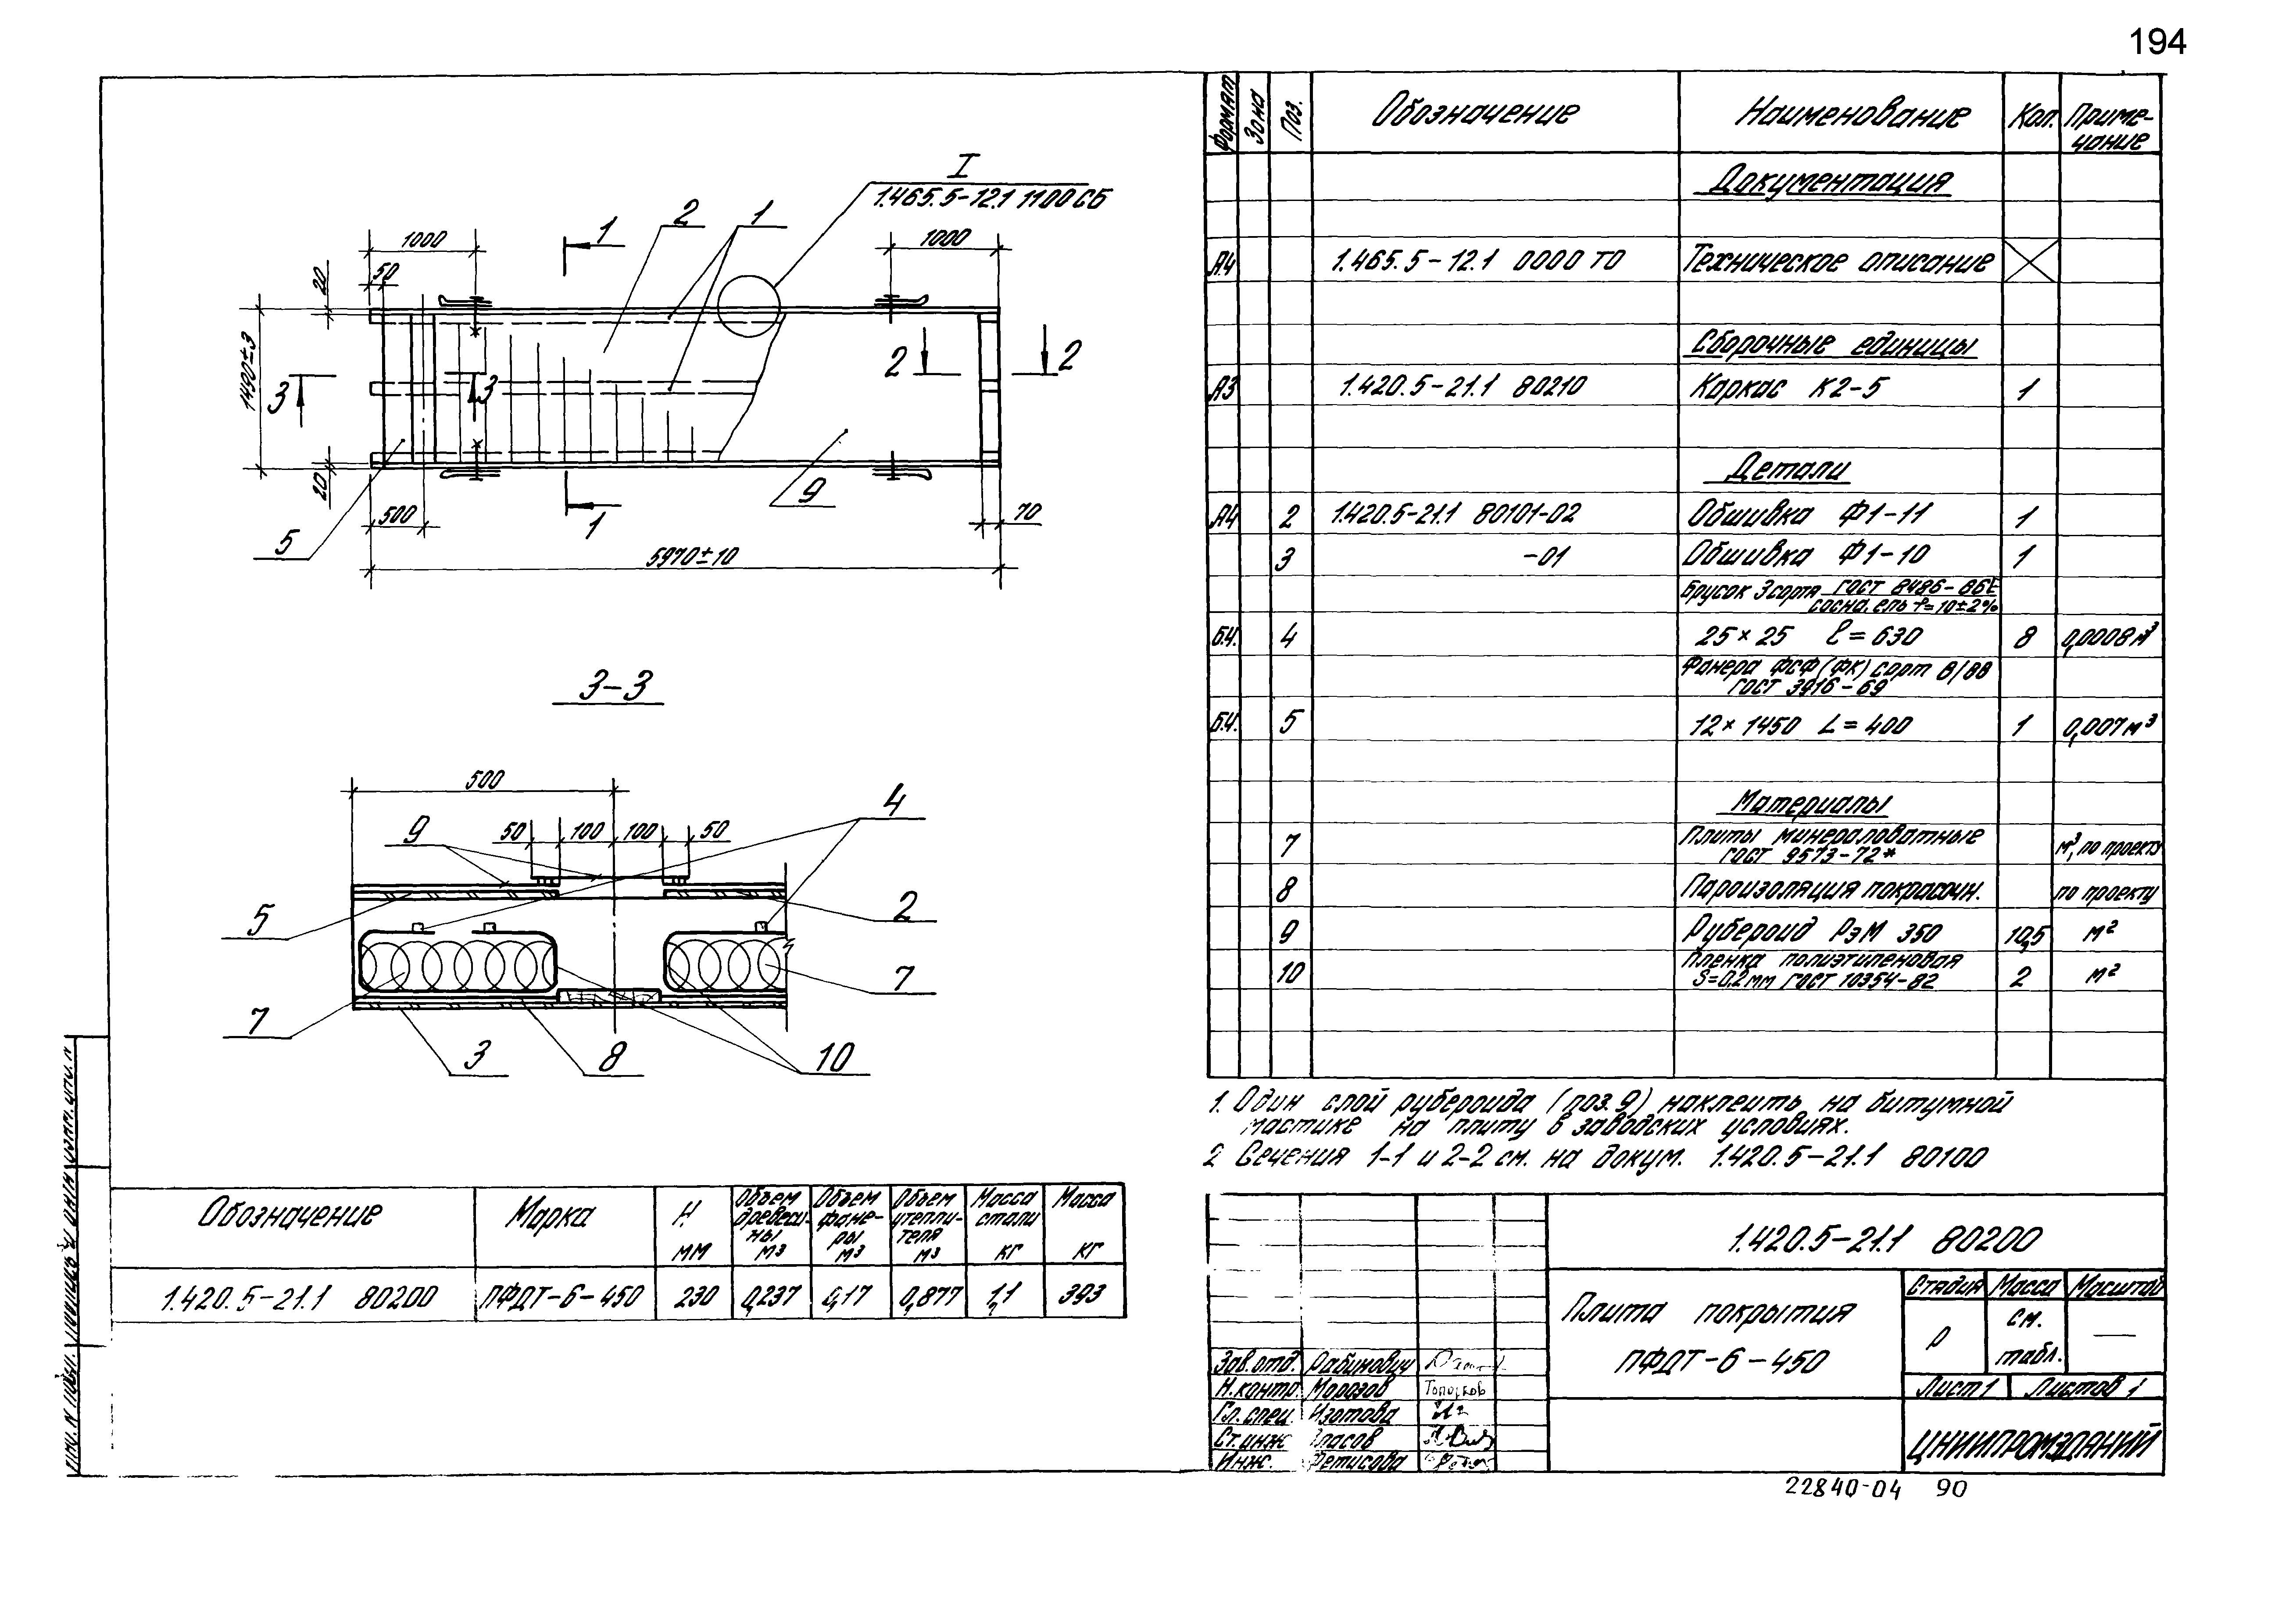 194
I
1.465.5-12.1 1100 СБ
1000
1
2
1
1000
50
20
1490±3
3
3
2
2
20
500
1
9
70
5
5970±10
3-3
500
4
9
50
100
100
50
5
2
7
7
3
8
10
Обозначение
Марка
Н мм
Объем древеси-ны м3
Объем фане-ры м3
Объем утепли-теля м3
Масса стали кг
Масса кг
1.420.5-21.1 80200
ПФДТ-6-450
230
0,237
0,17
0,877
1,1
393
Формат
Зона
Поз.
Обозначение
Наименование
Кол.
Приме-чание
Документация
А4 1.465.5-12.1 0000 ТО Техническое описание
Сборочные единицы
А3 1.420.5-21.1 80210 Каркас К2-5 1
Детали
А4 2 1.420.5-21.1 80101-02 Обшивка Ф1-11 1
3 -01 Обшивка Ф1-10 1
Брусок 3 сорта ГОСТ 8486-86Е
сосна, ель
Б.Ч. 4 25×25 ℓ=630 8 0,0008 м3
Фанера ФСФ (ФК) сорт В/ВВ
ГОСТ 3916-69
Б.Ч. 5 12×1450 L=400 1 0,007 м3
Материалы
7 Плиты минераловатные
ГОСТ 9573-72* м3, по проекту
8 Пароизоляция покрасочн. по проекту
9 Рубероид РэМ 350 10,5 м2
Пленка полиэтиленовая
10 S=0,2мм ГОСТ 10354-82 2 м2
1. Один слой рубероида (поз. 9) наклеить на битумной
мастике на плиту в заводских условиях.
2 Сечения 1-1 и 2-2 см. на докум. 1.420.5-21.1 80100
1.420.5-21.1 80200
Плита покрытия
ПФДТ-6-450
Стадия
Масса
Масштаб
Р
см.
табл.
—
Лист 1
Листов 1
ЦНИИПРОМЗДАНИЙ
Зав.отд. Рабинович
Н.контр. Морозов
Гл.спец. Изотова
Ст.инж Власов
Инж. Фетисова
22840-04 90